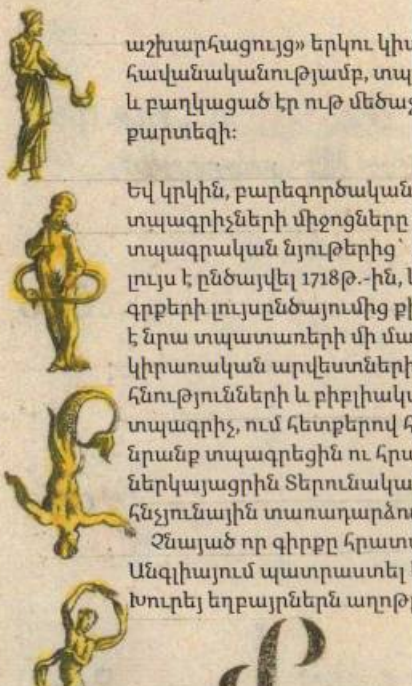 աշխարհացույց» երկու կիս
հավանականությամբ, տպ
և բաղկացած էր ութ մեծաչ
քարտեզի:
Եվ կրկին, բարեգործական
տպագրիչների միջոցները
տպագրական նյութերից՝
լույս է ընծայվել 1718թ.-ին,
գրքերի լույսընծայումից քի
է նրա տպատառերի մի մա
կիրառական արվեստների
հնությունների և բիբլիակ
տպագրիչ, ում հետքերով հ
նրանք տպագրեցին ու հրա
ներկայացրին Տերունակա
հնչյունային տառադարձու
Չնայած որ գիրքը հրատ
Անգլիայում պատրաստել
Խուրեյ եղբայրներն աղոթ